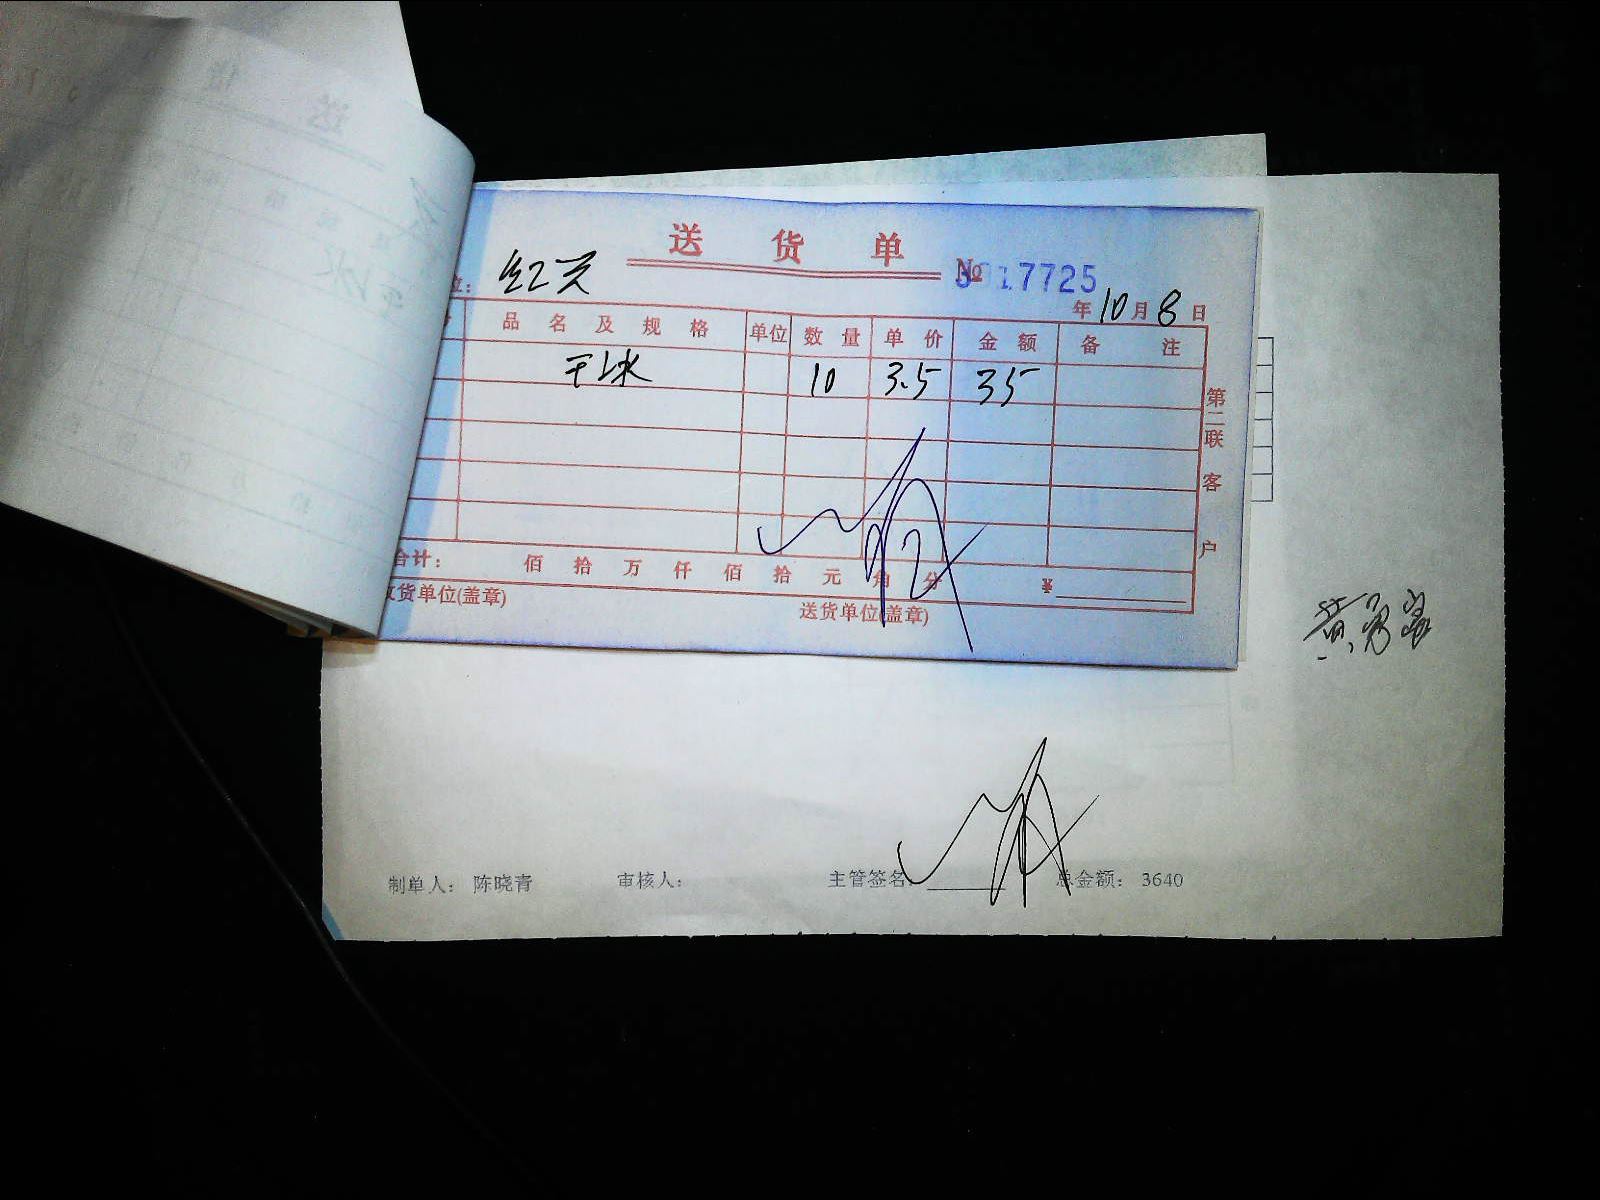 送货单
№ 17725
位: 红天
年10月8日
品名及规格 单位 数量 单价 金额 备注
干冰 10 3.5 35
第二联 客户
合计: 佰 拾 万 仟 佰 拾 元 角 分 ¥
收货单位(盖章) 送货单位(盖章)
制单人: 陈晓青 审核人: 主管签名: 总金额: 3640